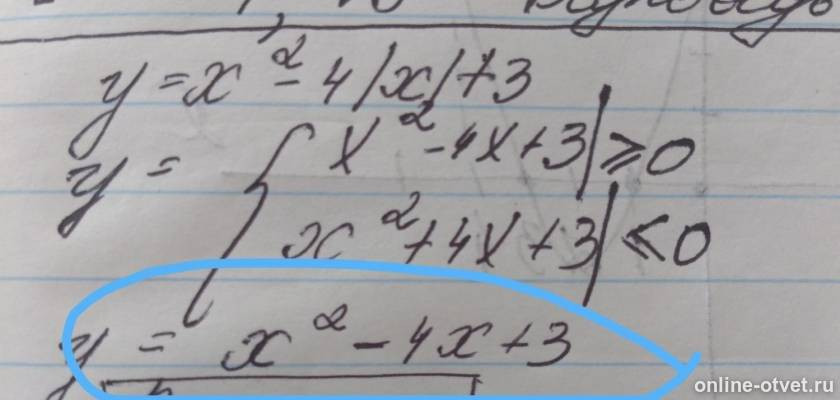 y = x² - 4|x| + 3
y = { x² - 4x + 3 | ⩾ 0
x² + 4x + 3 | < 0
y = x² - 4x + 3
online-otvet.ru